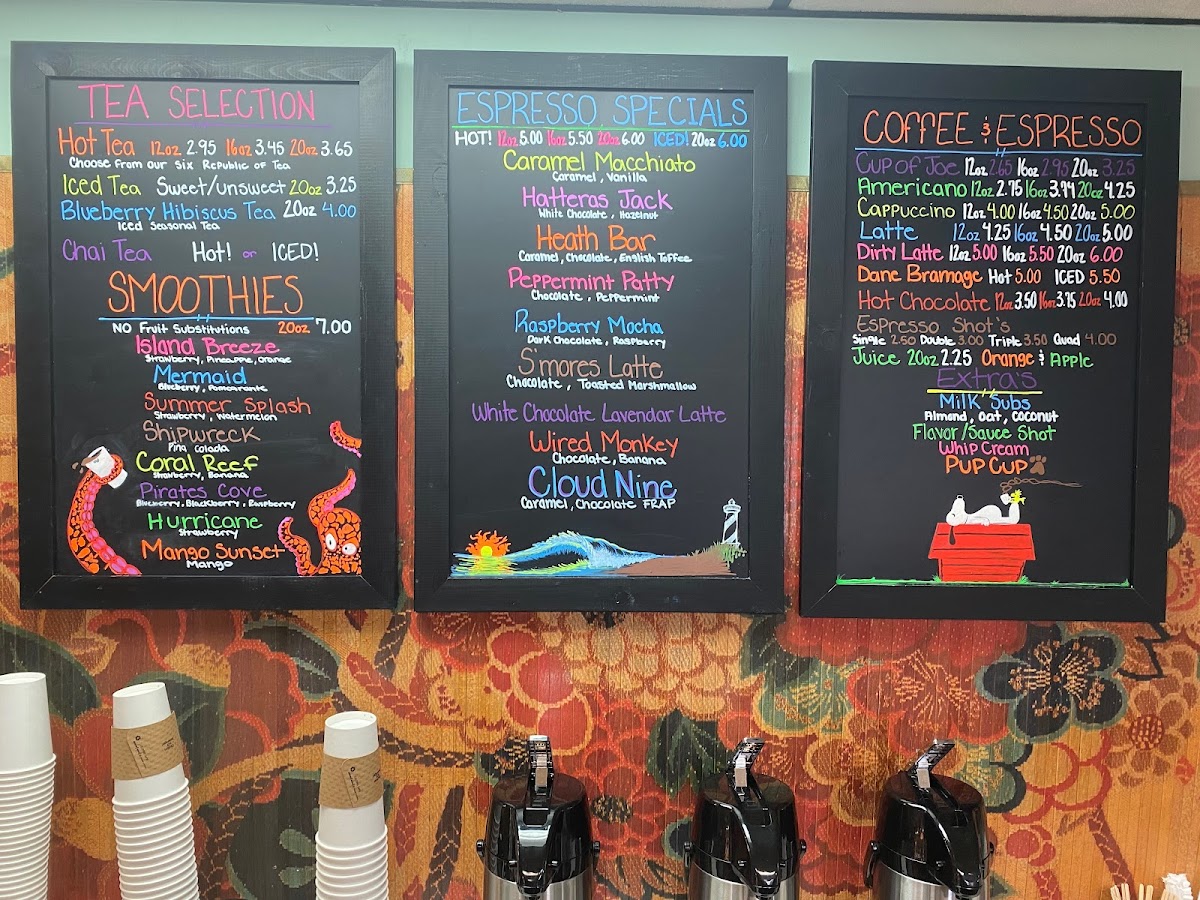 TEA SELECTION
Hot Tea 12oz 2.95 16oz 3.45 20oz 3.65
Choose from our Six Republic of Tea
Iced Tea Sweet/unsweet 20oz 3.25
Blueberry Hibiscus Tea 20oz 4.00
Iced Seasonal Tea
Chai Tea Hot! or ICED!
SMOOTHIES
NO Fruit Substitutions 20oz 7.00
Island Breeze
Strawberry, Pineapple, Orange
Mermaid
Blueberry, Pomegranate
Summer Splash
Strawberry, Watermelon
Shipwreck
Pina Colada
Coral Reef
Strawberry, Banana
Pirates Cove
Blueberry, Blackberry, Raspberry
Hurricane
Strawberry
Mango Sunset
Mango
ESPRESSO SPECIALS
HOT! 12oz 5.00 16oz 5.50 20oz 6.00 ICED! 20oz 6.00
Caramel Macchiato
Caramel, Vanilla
Hatteras Jack
White Chocolate, Hazelnut
Heath Bar
Caramel, Chocolate, English Toffee
Peppermint Patty
Chocolate, Peppermint
Raspberry Mocha
Dark Chocolate, Raspberry
S'mores Latte
Chocolate, Toasted Marshmallow
White Chocolate Lavendar Latte
Wired Monkey
Chocolate, Banana
Cloud Nine
Caramel, Chocolate FRAP
COFFEE & ESPRESSO
Cup of Joe 12oz 2.65 16oz 2.95 20oz 3.25
Americano 12oz 2.75 16oz 3.94 20oz 4.25
Cappuccino 12oz 4.00 16oz 4.50 20oz 5.00
Latte 12oz 4.25 16oz 4.50 20oz 5.00
Dirty Latte 12oz 5.00 16oz 5.50 20oz 6.00
Dane Bramage Hot 5.00 ICED 5.50
Hot Chocolate 12oz 3.50 16oz 3.75 20oz 4.00
Espresso Shot's
Single 2.50 Double 3.00 Triple 3.50 Quad 4.00
Juice 20oz 2.25 Orange & Apple
Extra's
Milk Subs
Almond, Oat, Coconut
Flavor/Sauce Shot
Whip Cream
Pup Cup